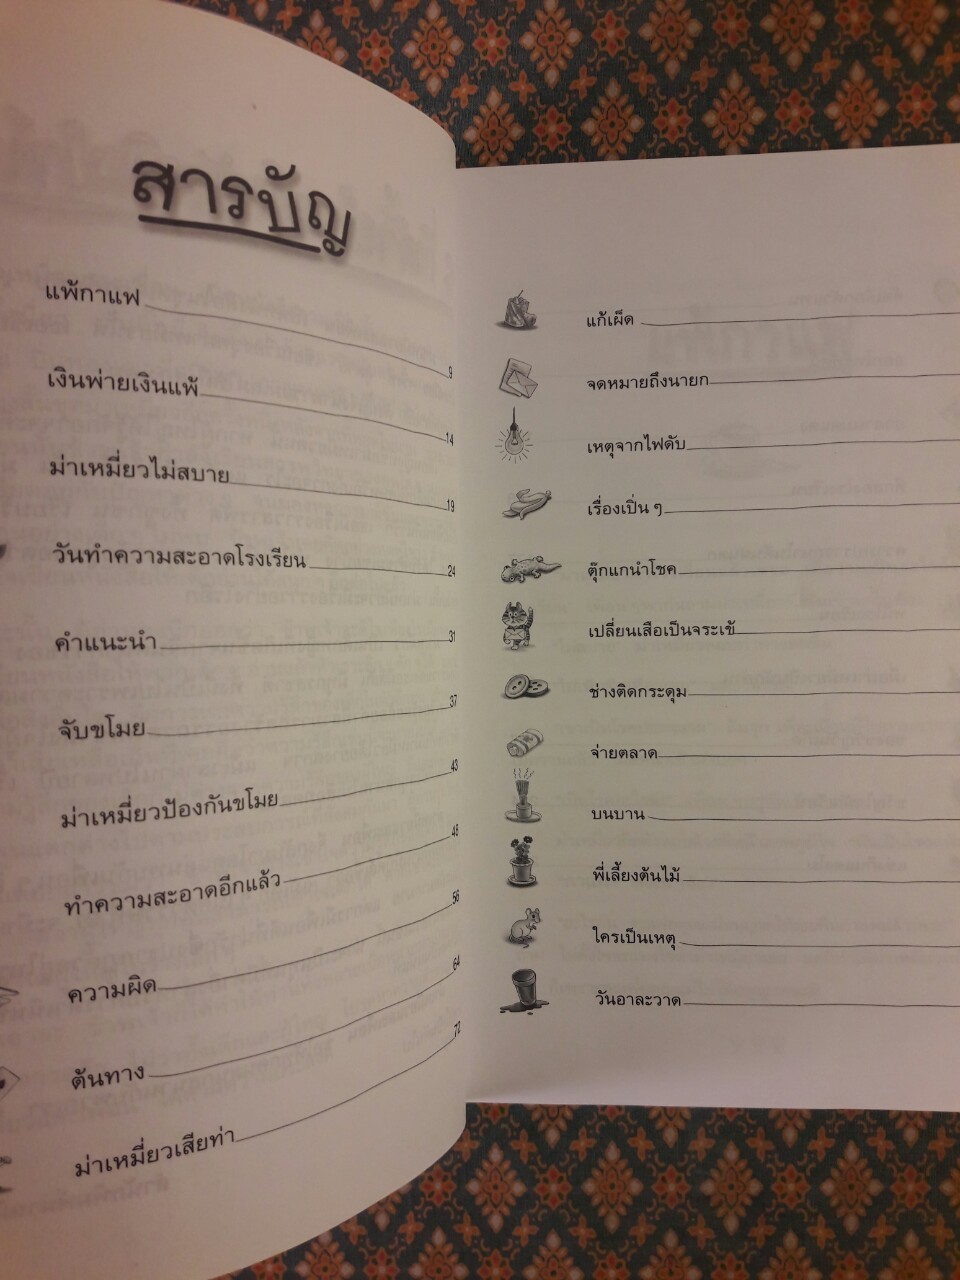 สารบัญ
แพ้กาแฟ 9
เงินพ่ายเงินแพ้ 14
ม่าเหมี่ยวไม่สบาย 19
วันทำความสะอาดโรงเรียน 24
คำแนะนำ 31
จับขโมย 37
ม่าเหมี่ยวป้องกันขโมย 43
ทำความสะอาดอีกแล้ว 48
ความผิด 56
ต้นทาง 64
ม่าเหมี่ยวเสียท่า 72
แก้เผ็ด
จดหมายถึงนายก
เหตุจากไฟดับ
เรื่องเปิ่น ๆ
ตุ๊กแกนำโชค
เปลี่ยนเสือเป็นจระเข้
ช่างติดกระดุม
จ่ายตลาด
บนบาน
พี่เลี้ยงต้นไม้
ใครเป็นเหตุ
วันอาละวาด